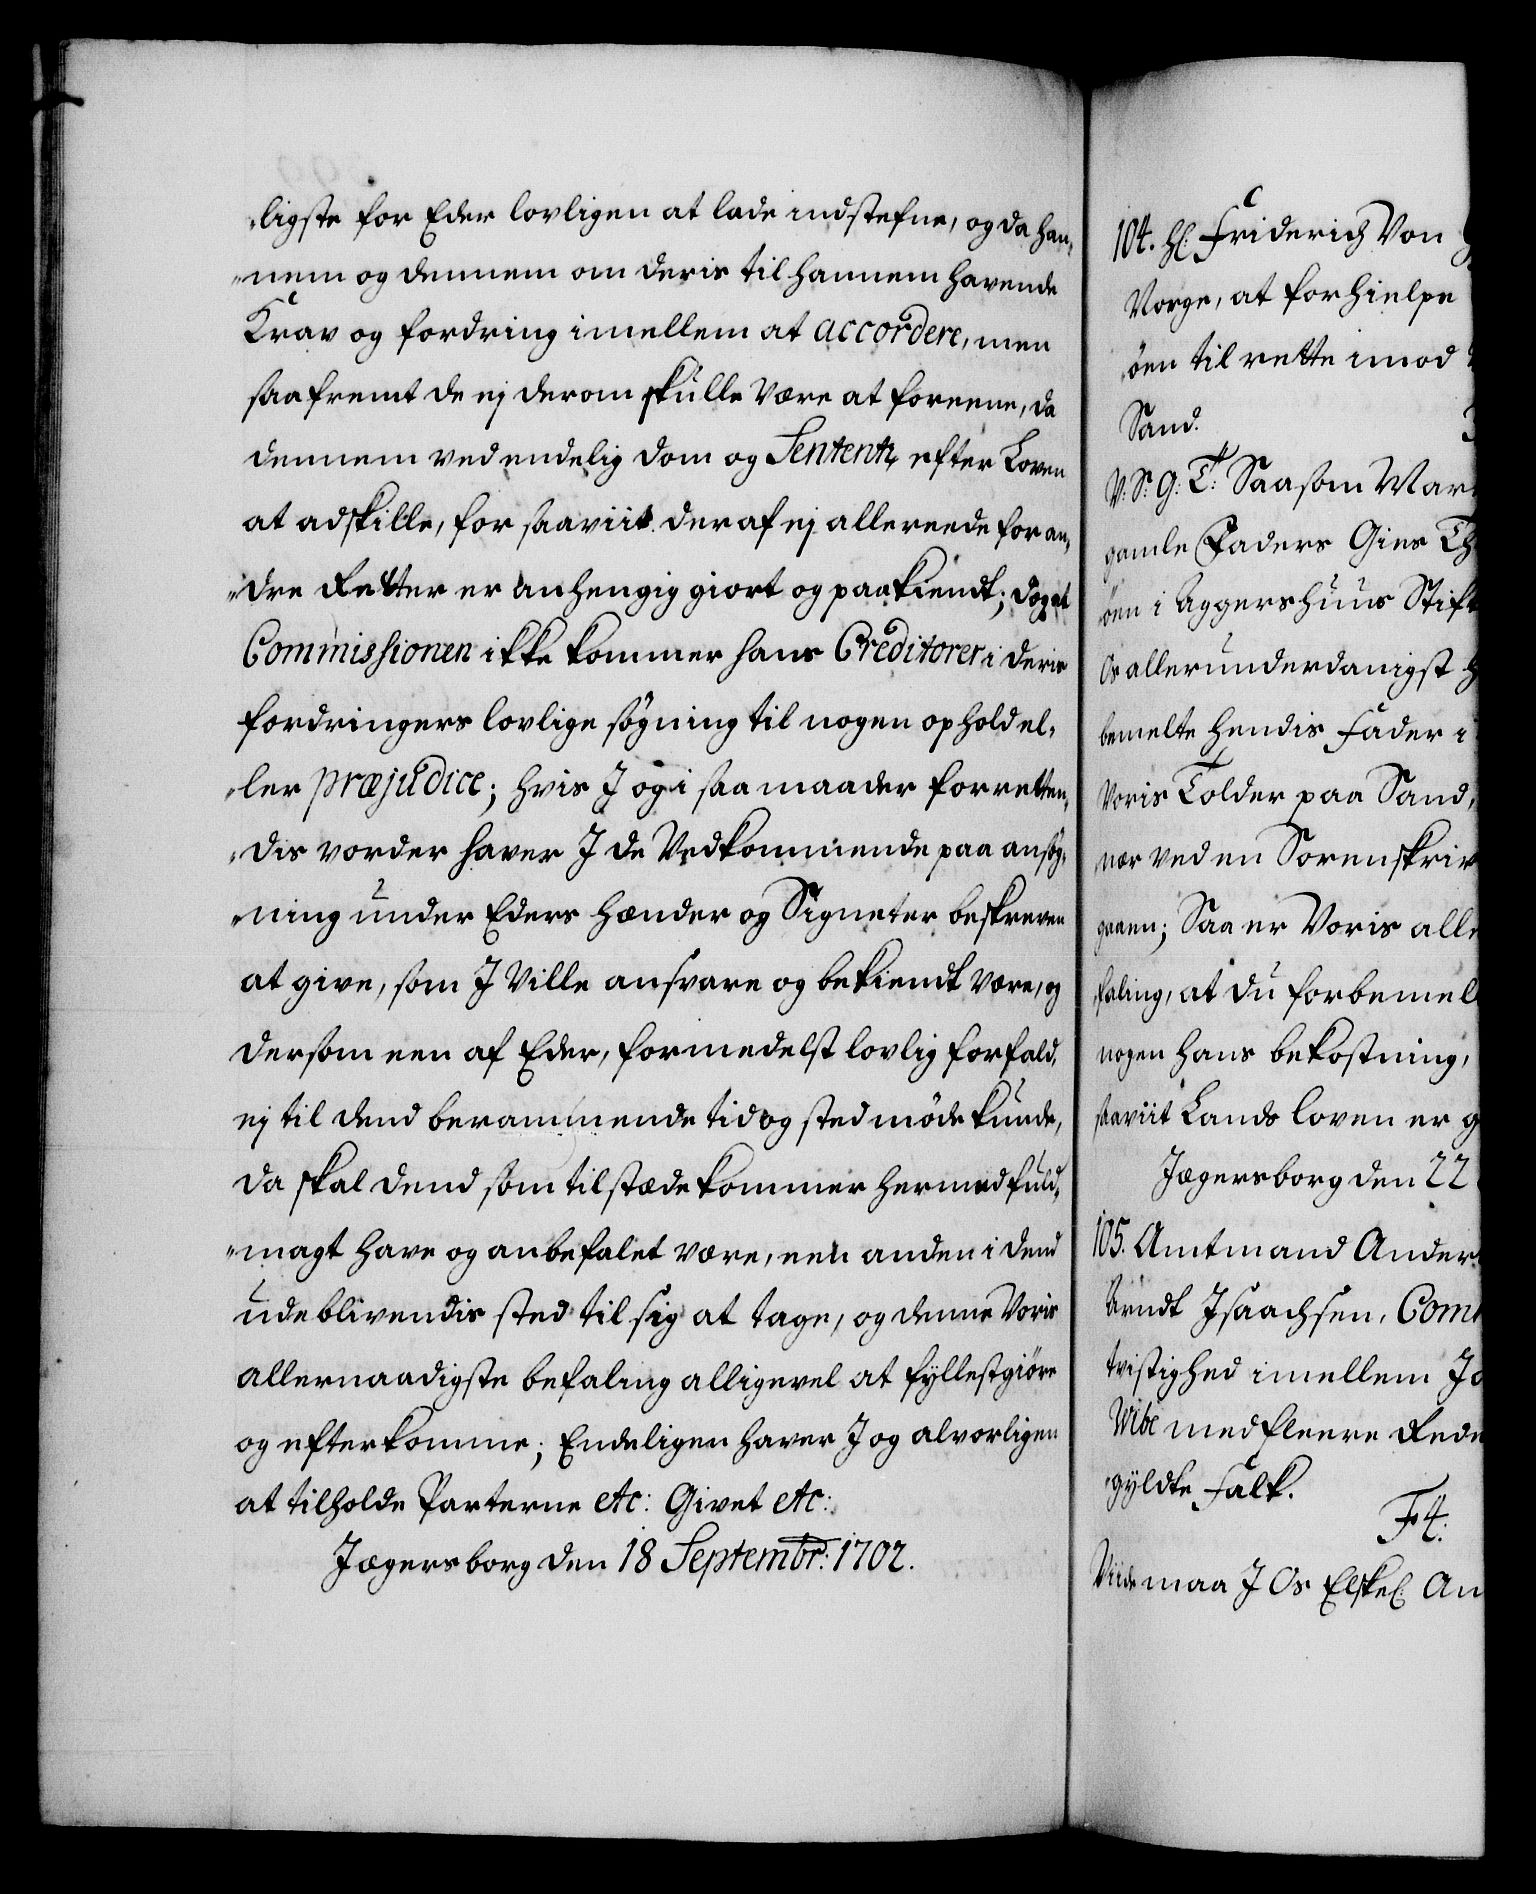 ligste for Eder lovligen at lade indstefne, og da han-
nem og dennem om deris til hannem havende
Krav og fordring imellem at accordere, men
saafremt de ej derom skulle være at foreene, da
dennem ved endelig dom og Sententz efter Loven
at adskille, for saaviit deraf ej allereede for an-
dre Retter er anhengig giort og paakiendt; dog at
Commissionen ikke kommer hans Creditorer i deris
fordringers lovlige søgning til nogen ophold el-
ler præjudice; hvis J og i saa maader forretten-
dis vorder haver J de Vedkommende paa ansøg-
ning under Eders hænder og Signeter beskreven
at give, som J Ville ansvare og bekiendt være, og
dersom een af Eder, formedelst lovlig forfald,
ej til dend berammende tid og sted møde kunde,
da skal dend som tilstæde kommer hermed fuld-
magt have og anbefalet være, een anden i dend
udeblivendis sted til sig at tage, og denne Voris
allernaadigste befaling alligevel at fyllestgiøre
og efterkomme; Endeligen haver J og alvorligen
at tilholde Parterne etc: Givet etc:
Jægersborg den 18 Septembr: 1702.
104. Hl: Friderich Von
Vorge, at forhielpe
øen til rette imod
Sand.
V: S: G: T: Saasom Mar
gamle Faders Gies Th
øen i Aggershuus Stift
Os allerunderdanigst
bemelte hendis Fader i
Voris Tolder paa Sand,
nær ved en Sorenskriv
gaaen; Saa er Voris alle
faling, at du forbemel
nogen hans bekostning,
saaviit Lands loven er g
Jægersborg den 22
105. Amtmand Ander
Arndt Isaachsen, Com
tvistighed imellem Jo
Wibe med fleere Rede
gyldte Falk.
F4:
Viide maa J Os Elskel: An